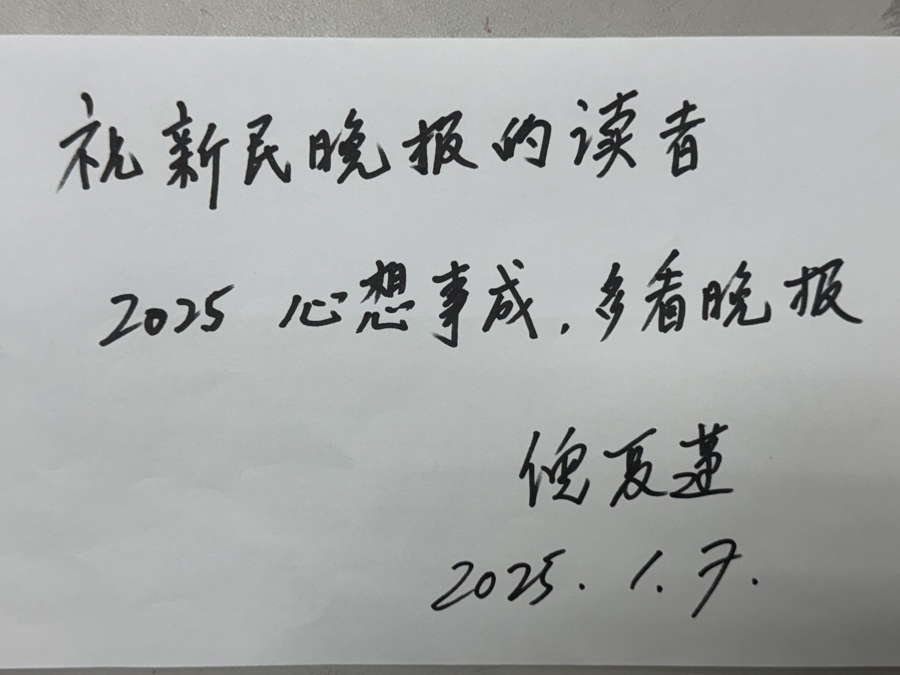 祝新民晚报的读者
2025 心想事成,多看晚报
倪夏莲
2025.1.7.